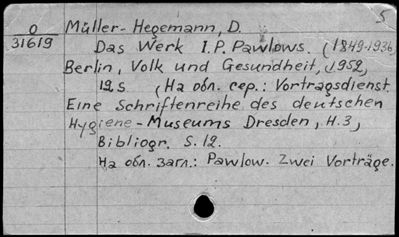 5
O
31619
Müller-Hegemann, D.
Das Werk I.P. Pawlows. (1849-1936
Berlin, Volk und Gesundheit, 1952,
12 s (На обл. сер.: Vortragsdienst.
Eine Schriftenreihe des deutschen
Hygiene-Museums Dresden, H.3,
Bibliogr. S. 12.
На обл. загл.: Pawlow. Zwei Vorträge.